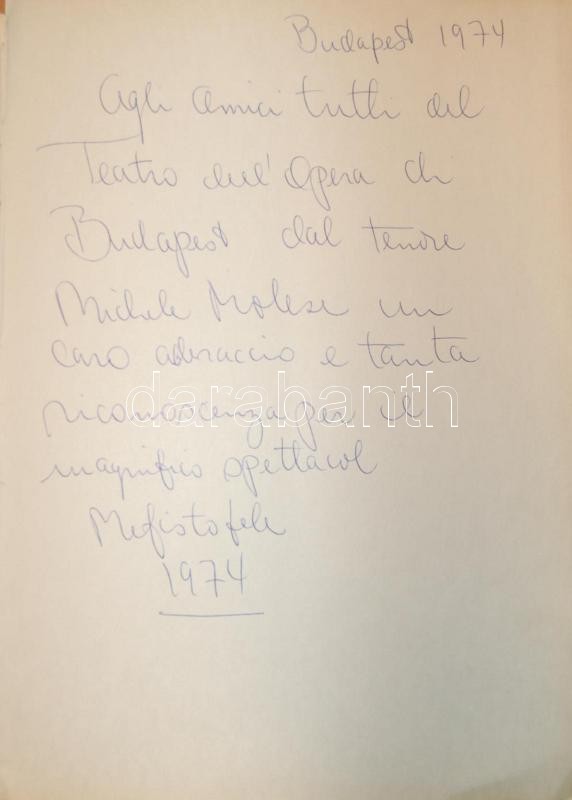 Budapest 1974
Agli Amici tutti del
Teatro dell'Opera di
Budapest dal tenore
Michele Molese un
caro abbraccio e tanta
riconoscenza per il
darabanth
magnifico spettacol
Mefistofele
1974